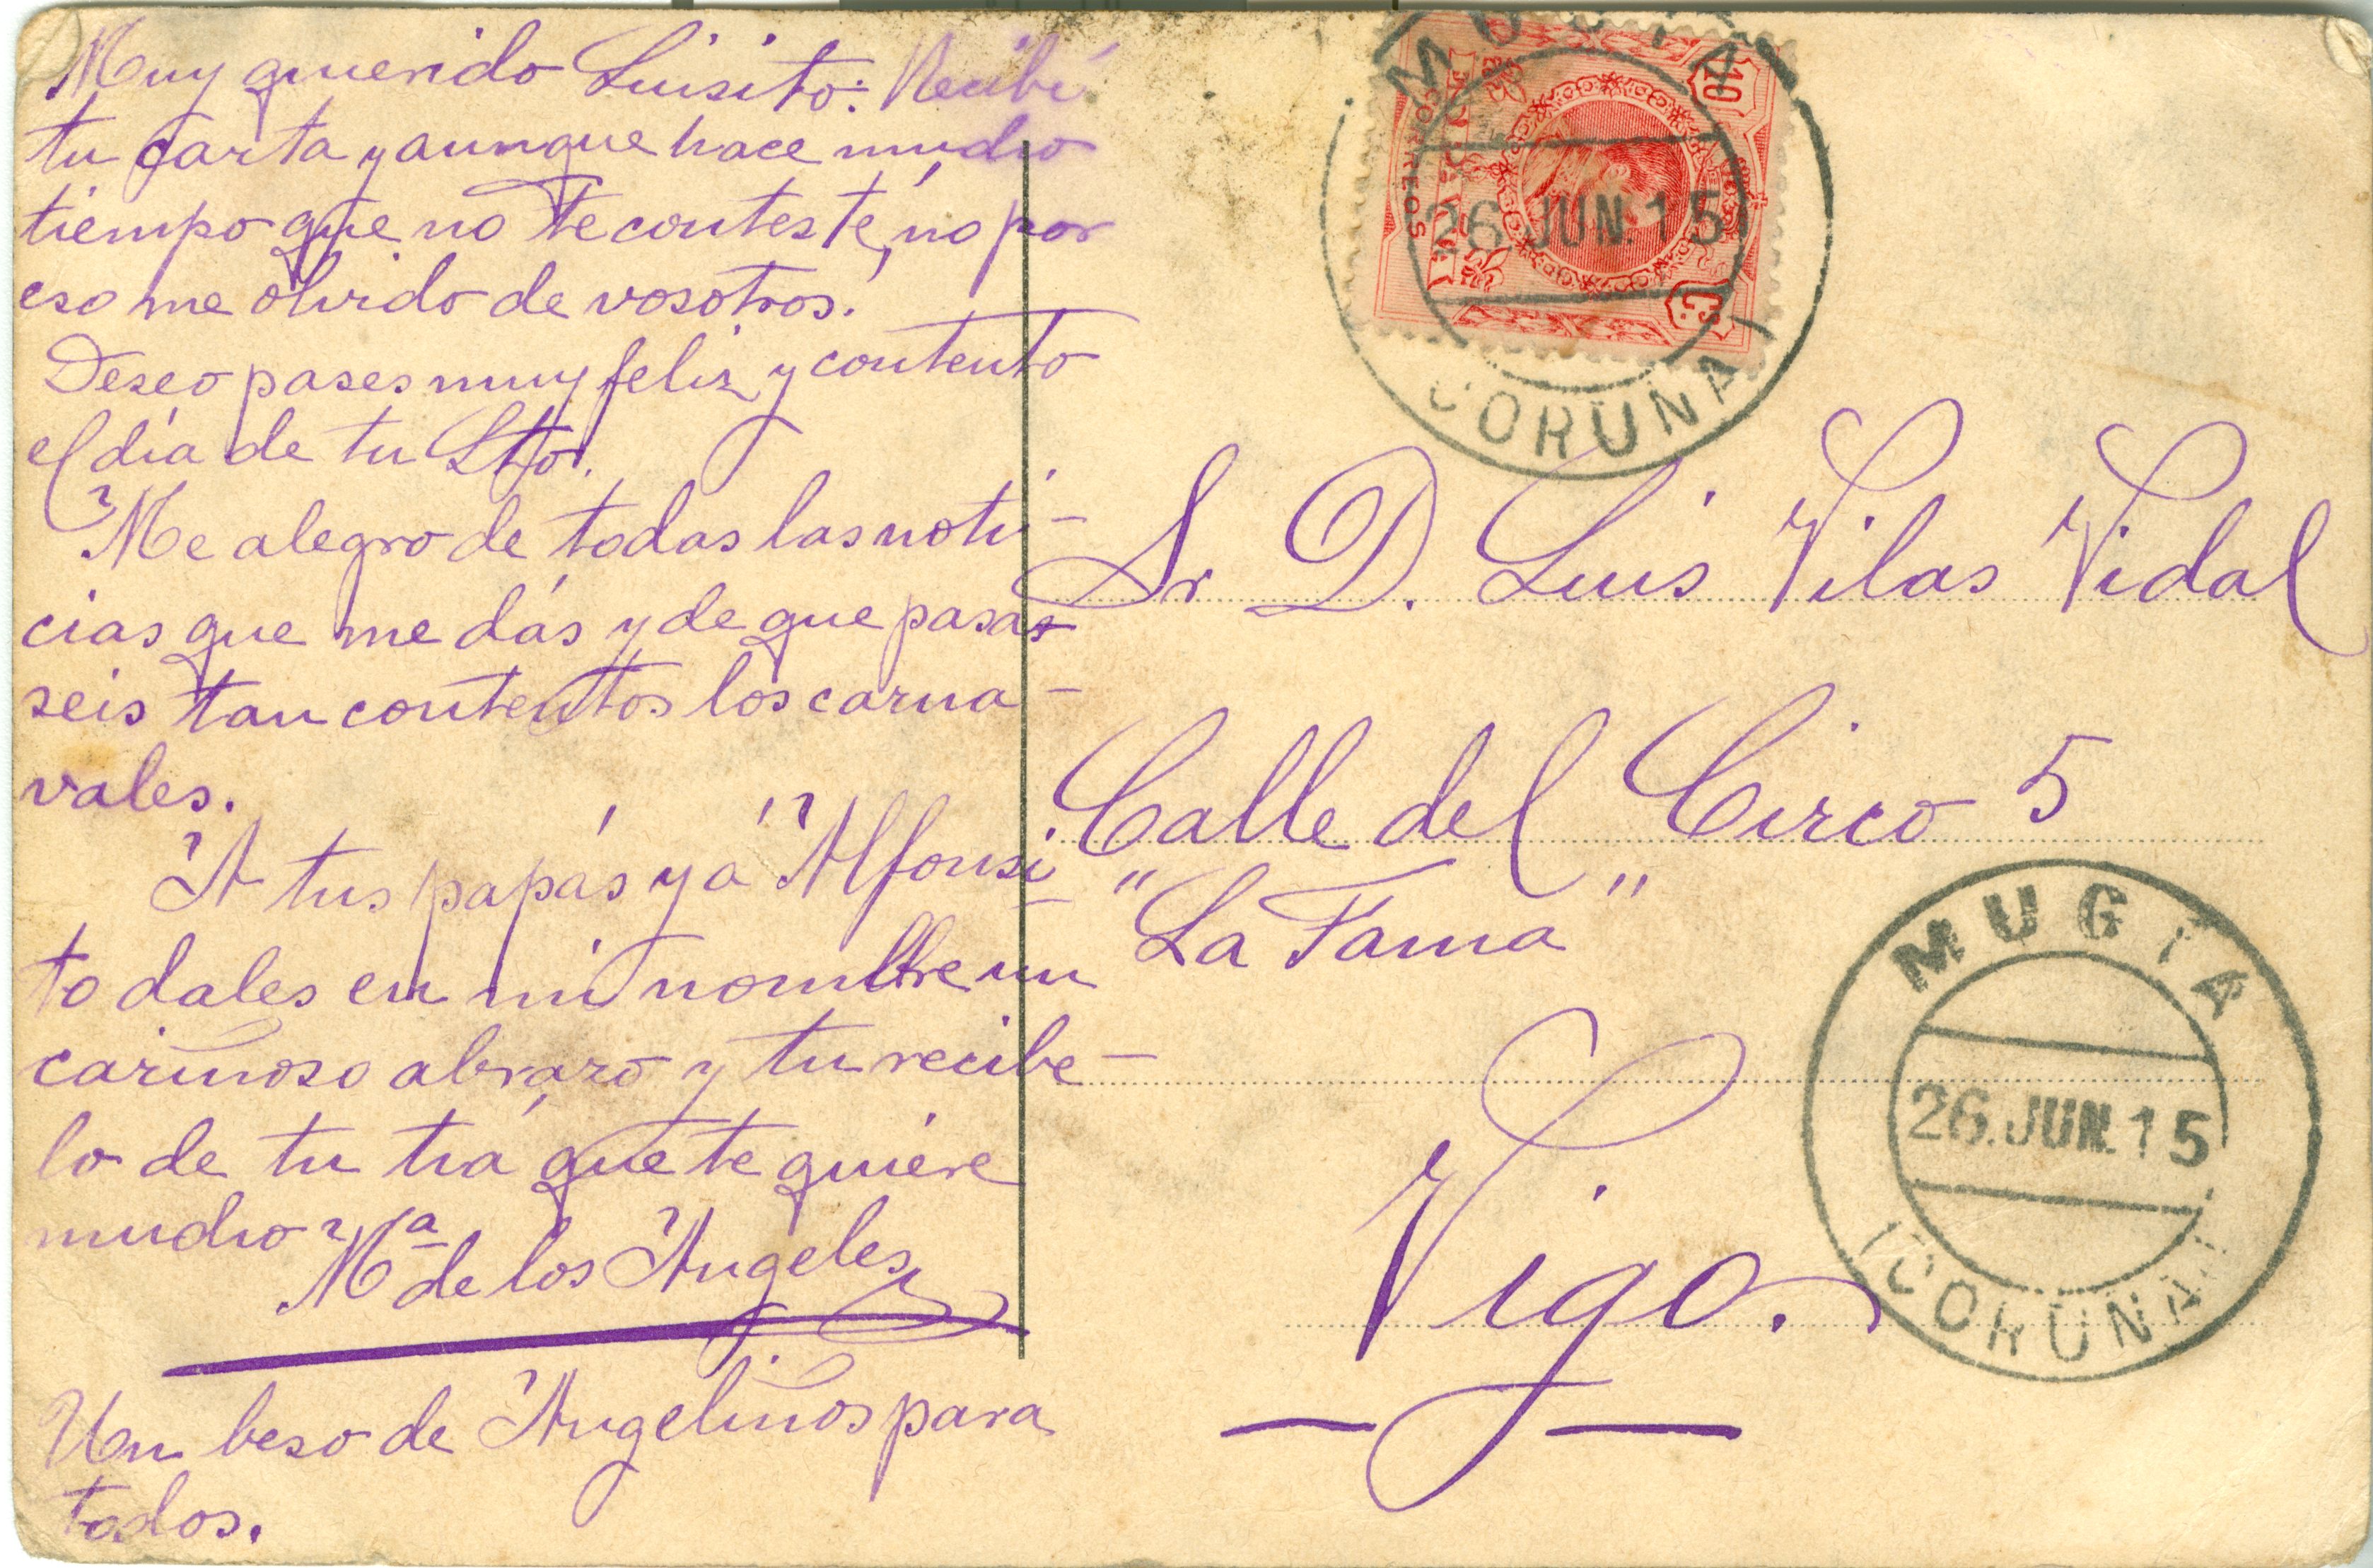 Muy querido Luisito: Recibí
tu carta y aunque hace mucho
tiempo que no te contesté, no por
eso me olvido de vosotros.
Deseo pases muy feliz y contento
el día de tu Sto.
Me alegro de todas las noti-
cias que me dás y de que pasa-
seis tan contentos los carna-
vales.
A tus papás y á Alfonsi-
to dales en mi nombre un
cariñoso abrazo y tu recibe-
lo de tu tía que te quiere
mucho
Mª de los Angeles
Un beso de Angeliños para
todos.
MUGIA
10
Cs.
CORREOS
26 JUN. 15
(CORUÑA)
Sr. D. Luis Vilas Vidal
Calle del Circo 5
"La Fama"
Vigo.
MUGIA
26. JUN. 15
(CORUÑA)